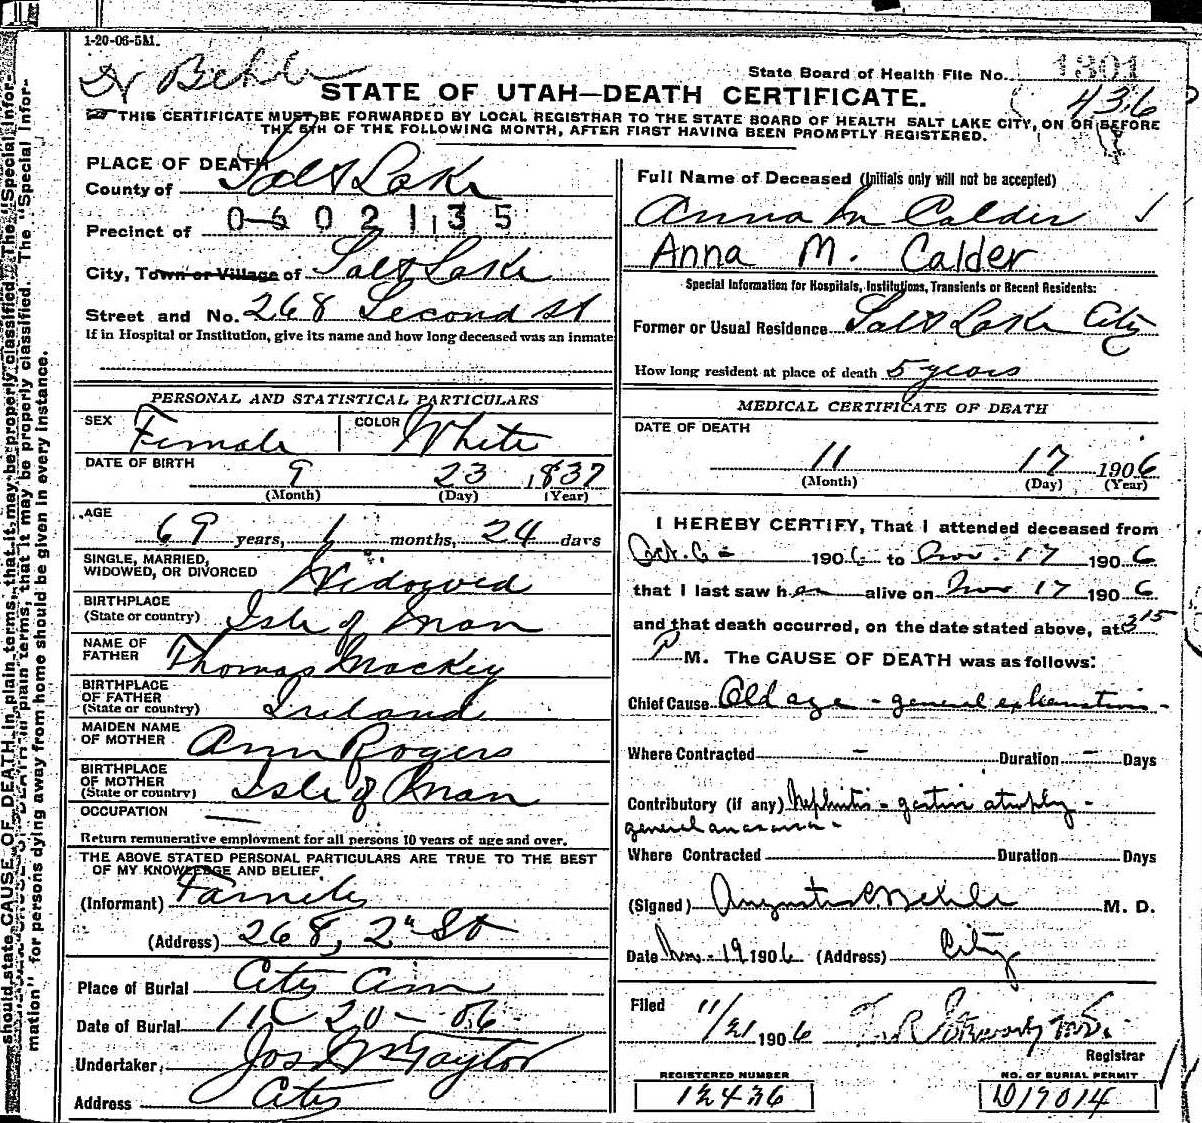 1-20-06-5M.
Dr Behle
State Board of Health File No. 1301
436
STATE OF UTAH—DEATH CERTIFICATE.
THIS CERTIFICATE MUST BE FORWARDED BY LOCAL REGISTRAR TO THE STATE BOARD OF HEALTH SALT LAKE CITY, ON OR BEFORE
THE 5TH OF THE FOLLOWING MONTH, AFTER FIRST HAVING BEEN PROMPTLY REGISTERED.
PLACE OF DEATH
County of Salt Lake
0502135
Precinct of
City, Town or Village of Salt Lake
Street and No. 268 Second St
If in Hospital or Institution, give its name and how long deceased was an inmate
PERSONAL AND STATISTICAL PARTICULARS
SEX Female COLOR White
DATE OF BIRTH 9 23 1837
(Month) (Day) (Year)
AGE 69 years, 1 months, 24 days
SINGLE, MARRIED,
WIDOWED, OR DIVORCED Widowed
BIRTHPLACE
(State or country) Isle of Man
NAME OF
FATHER Thomas Mackey
BIRTHPLACE
OF FATHER
(State or country) Ireland
MAIDEN NAME
OF MOTHER Ann Rogers
BIRTHPLACE
OF MOTHER
(State or country) Isle of Man
OCCUPATION —
Return remunerative employment for all persons 10 years of age and over.
THE ABOVE STATED PERSONAL PARTICULARS ARE TRUE TO THE BEST
OF MY KNOWLEDGE AND BELIEF
(Informant) Family
(Address) 268, 2nd St
Place of Burial City Cem
Date of Burial 11 - 20 - 06
Undertaker, Jos Wm Taylor
Address City
Full Name of Deceased (Initials only will not be accepted)
Anna M Calder
Anna M. Calder
Special Information for Hospitals, Institutions, Transients or Recent Residents:
Former or Usual Residence Salt Lake City
How long resident at place of death 5 years
MEDICAL CERTIFICATE OF DEATH
DATE OF DEATH
11 17 1906
(Month) (Day) (Year)
I HEREBY CERTIFY, That I attended deceased from
Oct. 6 - 1906 to Nov. 17 1906
that I last saw her alive on Nov 17 1906
and that death occurred, on the date stated above, at 3 15
P M. The CAUSE OF DEATH was as follows:
Chief Cause Old age - general exhaustion -
Where Contracted - Duration - Days
Contributory (if any) Nephritis - gastric atrophy -
general anasarca -
Where Contracted Duration Days
(Signed) Augustus C. Behle M. D.
Date Nov - 19 1906 (Address) City
Filed 11/21 1906
Registrar
REGISTERED NUMBER NO. OF BURIAL PERMIT
12436 D19014
should state CAUSE OF DEATH in plain terms, that it may be properly classified. The "Special Infor-
mation" for persons dying away from home should be given in every instance.